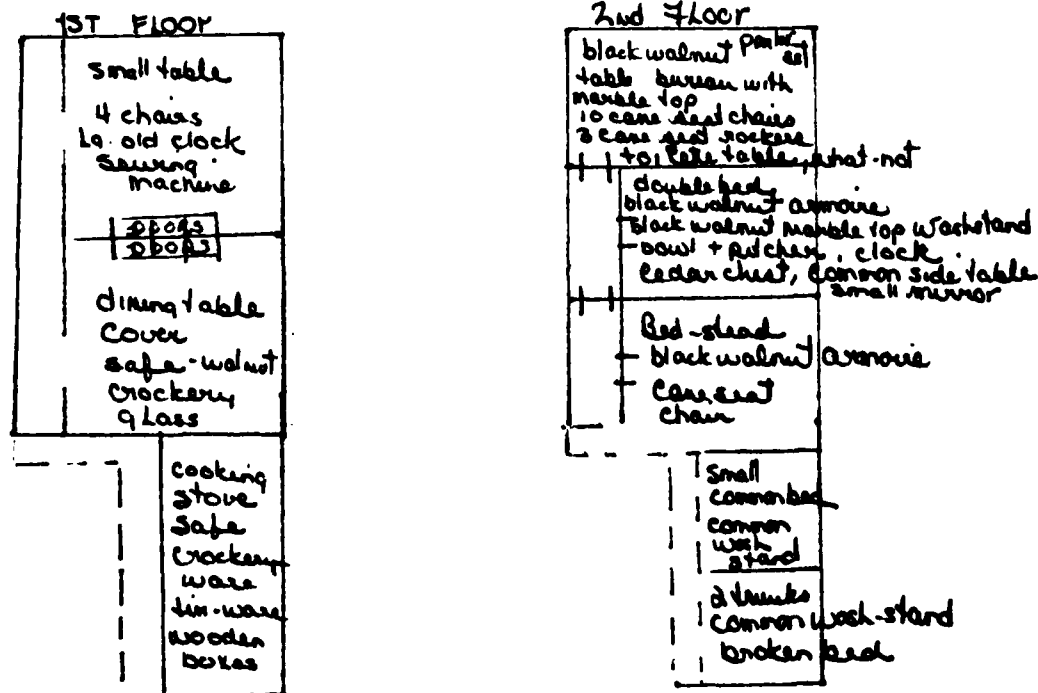 1ST FLOOR
small table
4 chairs
Lg. old clock
Sewing
machine
DOORS
DOORS
dining table
cover
safe-walnut
crockery
glass
cooking
stove
safe
crockery
ware
tin-ware
wooden
boxes
2nd FLOOR
black walnut parlor
set
table bureau with
marble top
10 cane seat chairs
3 cane seat rockers
toilette table, what-not
double bed,
black walnut armoire
black walnut marble top washstand
bowl + pitcher, clock.
cedar chest, common side table
small mirror
Bed-stead
black walnut armoire
cane seat
chair
small
common bed
common
wash
stand
2 trunks
common wash-stand
broken bed